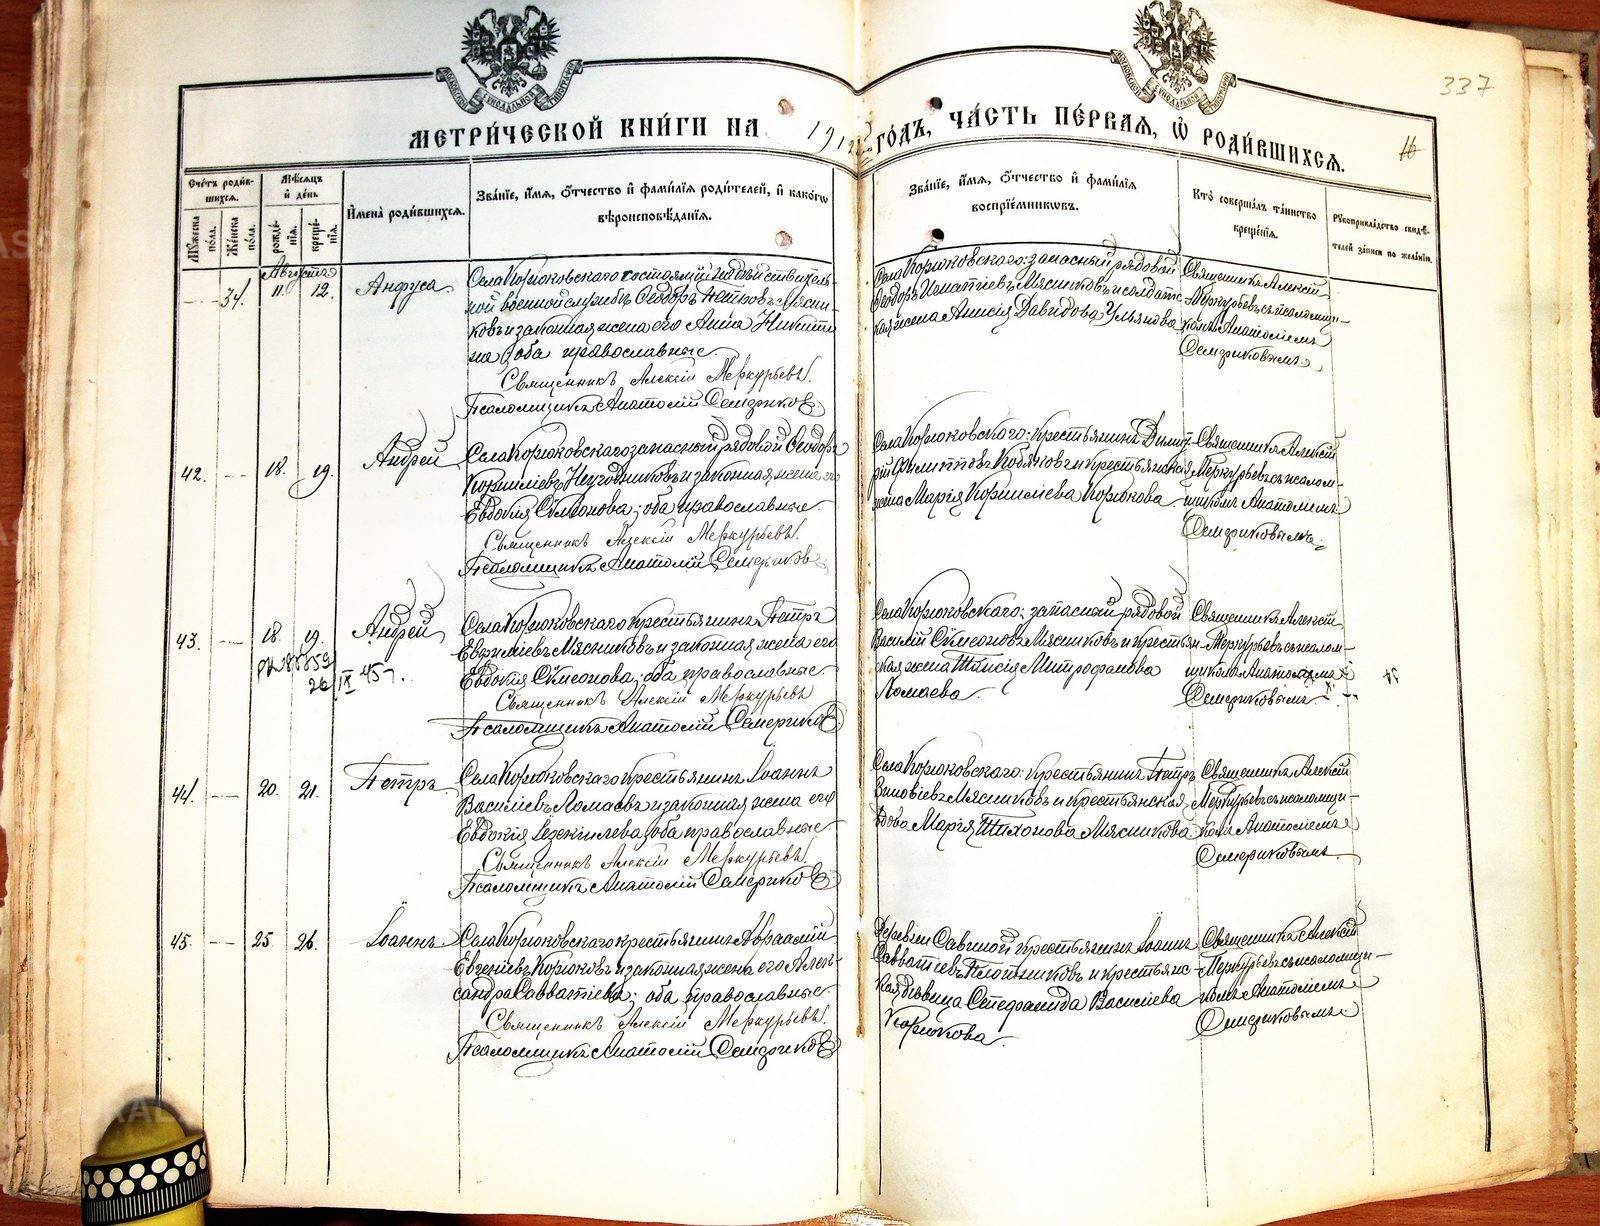 337
16
МЕТРИ́ЧЕСКОЙ КНИ́ГИ НА 1912 ГО́ДЪ, ЧА́СТЬ ПЕ́РВАЯ, Ѿ РОДИ́ВШИХСЯ.
Сче́тъ роди́вшихся.
Мѣ́сяцъ и҆ де́нь
И҆мена̀ роди́вшихся.
Зва́нїе, и҆́мя, о҆́тчество и҆ фами́лїя роди́телей, и҆ како́гѡ вѣроисповѣ́данїя.
Зва́нїе, и҆́мя, о҆́тчество и҆ фами́лїя воспрїе́мникѡвъ.
Кто̀ соверша́лъ та́инство креще́нїя.
Рꙋкоприкла́дство свидѣ́телей за́писи по жела́нїю.
Мꙋ́жеска по́ла.
Же́нска по́ла.
рожде́нїя.
креще́нїя.
Августа
34. 11. 12. Анфуса
Села Корюковскаго состоящій на дѣйствитель-
ной военной службѣ Ѳеодоръ Петровъ Мясни-
ковъ и законная жена его Анна Никити-
на, оба православные.
Священникъ Алексій Меркурьевъ.
Псаломщикъ Анатолій Семериковъ
Села Корюковскаго: запасный рядовой
Ѳеодоръ Игнатіевъ Мясниковъ и солдатс-
кая жена Анисія Давидова Ульянова
Священникъ Алексій
Меркурьевъ съ псаломщи-
комъ Анатоліемъ
Семериковымъ.
42. 18. 19. Андрей
Села Корюковскаго запасный рядовой Ѳеодоръ
Корниліевъ и законная жена его
Евдокія Сѵмеонова; оба православные.
Священникъ Алексій Меркурьевъ.
Псаломщикъ Анатолій Семериковъ
Села Корюковскаго: крестьянинъ Димит-
рій Филипповъ Кобяковъ и крестьянская
жена Марія Корниліева Корюкова
Священникъ Алексій
Меркурьевъ съ псалом-
щикомъ Анатоліемъ
Семериковымъ.
43. 18. 19. Андрей
26/IX 457.
Села Корюковскаго крестьянинъ Петръ
Евѳиміевъ Мясниковъ и законная жена его
Евдокія Сѵмеонова; оба православные.
Священникъ Алексій Меркурьевъ
Псаломщикъ Анатолій Семериковъ
Села Корюковскаго: запасный рядовой
Василій Сѵмеоновъ Мясниковъ и крестьян-
ская жена Таисія Митрофанова
Ломаева
Священникъ Алексій
Меркурьевъ съ псалом-
щикомъ Анатоліемъ
Семериковымъ
44. 20. 21. Петръ
Села Корюковскаго крестьянинъ Іоаннъ
Василіевъ Ломаевъ и законная жена его
Евдокія Іезекіилева; оба православные.
Священникъ Алексій Меркурьевъ.
Псаломщикъ Анатолій Семериковъ
Села Корюковскаго: крестьянинъ Петръ
Зиновіевъ Мясниковъ и крестьянская
вдова Марія Тихонова Мясникова
Священникъ Алексій
Меркурьевъ съ псаломщи-
комъ Анатоліемъ
Семериковымъ.
45. 25. 26. Іоаннъ
Села Корюковскаго крестьянинъ Авраамій
Евгеніевъ Корюковъ и законная жена его Алек-
сандра Савватіева; оба православные.
Священникъ Алексій Меркурьевъ.
Псаломщикъ Анатолій Семериковъ
Деревни Савиной крестьянинъ Іоаннъ
Савватіевъ Плотниковъ и крестьянс-
кая дѣвица Стефанида Василіева
Корюкова
Священникъ Алексій
Меркурьевъ съ псаломщи-
комъ Анатоліемъ
Семериковымъ